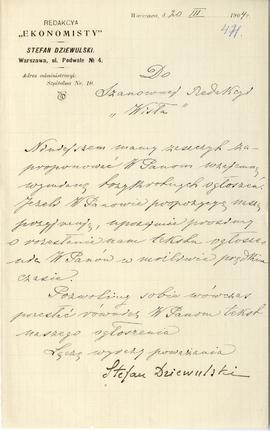 REDAKCYA
„EKONOMISTY”
STEFAN DZIEWULSKI.
Warszawa, ul. Podwale № 4.
Adres administracyi:
Szpitalna Nr. 10.
Warszawa, d. 20 III 1904 r.
471.
Do
Szanownej Redakcyi
„Wisła”
Niniejszem mamy zaszczyt za-
proponować WPanom wzajemną
wymianę ogłoszeń.
Jeżeli WPanowie propozycyę naszą
przyjmują, uprzejmie prosimy
o nadesłanie nam tekstu ogłosze-
nia WPanów w możliwie prędkim
czasie.
Pozwolimy sobie wówczas
przesłać również WPanom tekst
naszego ogłoszenia
Łączę wyrazy poważania
Stefan Dziewulski